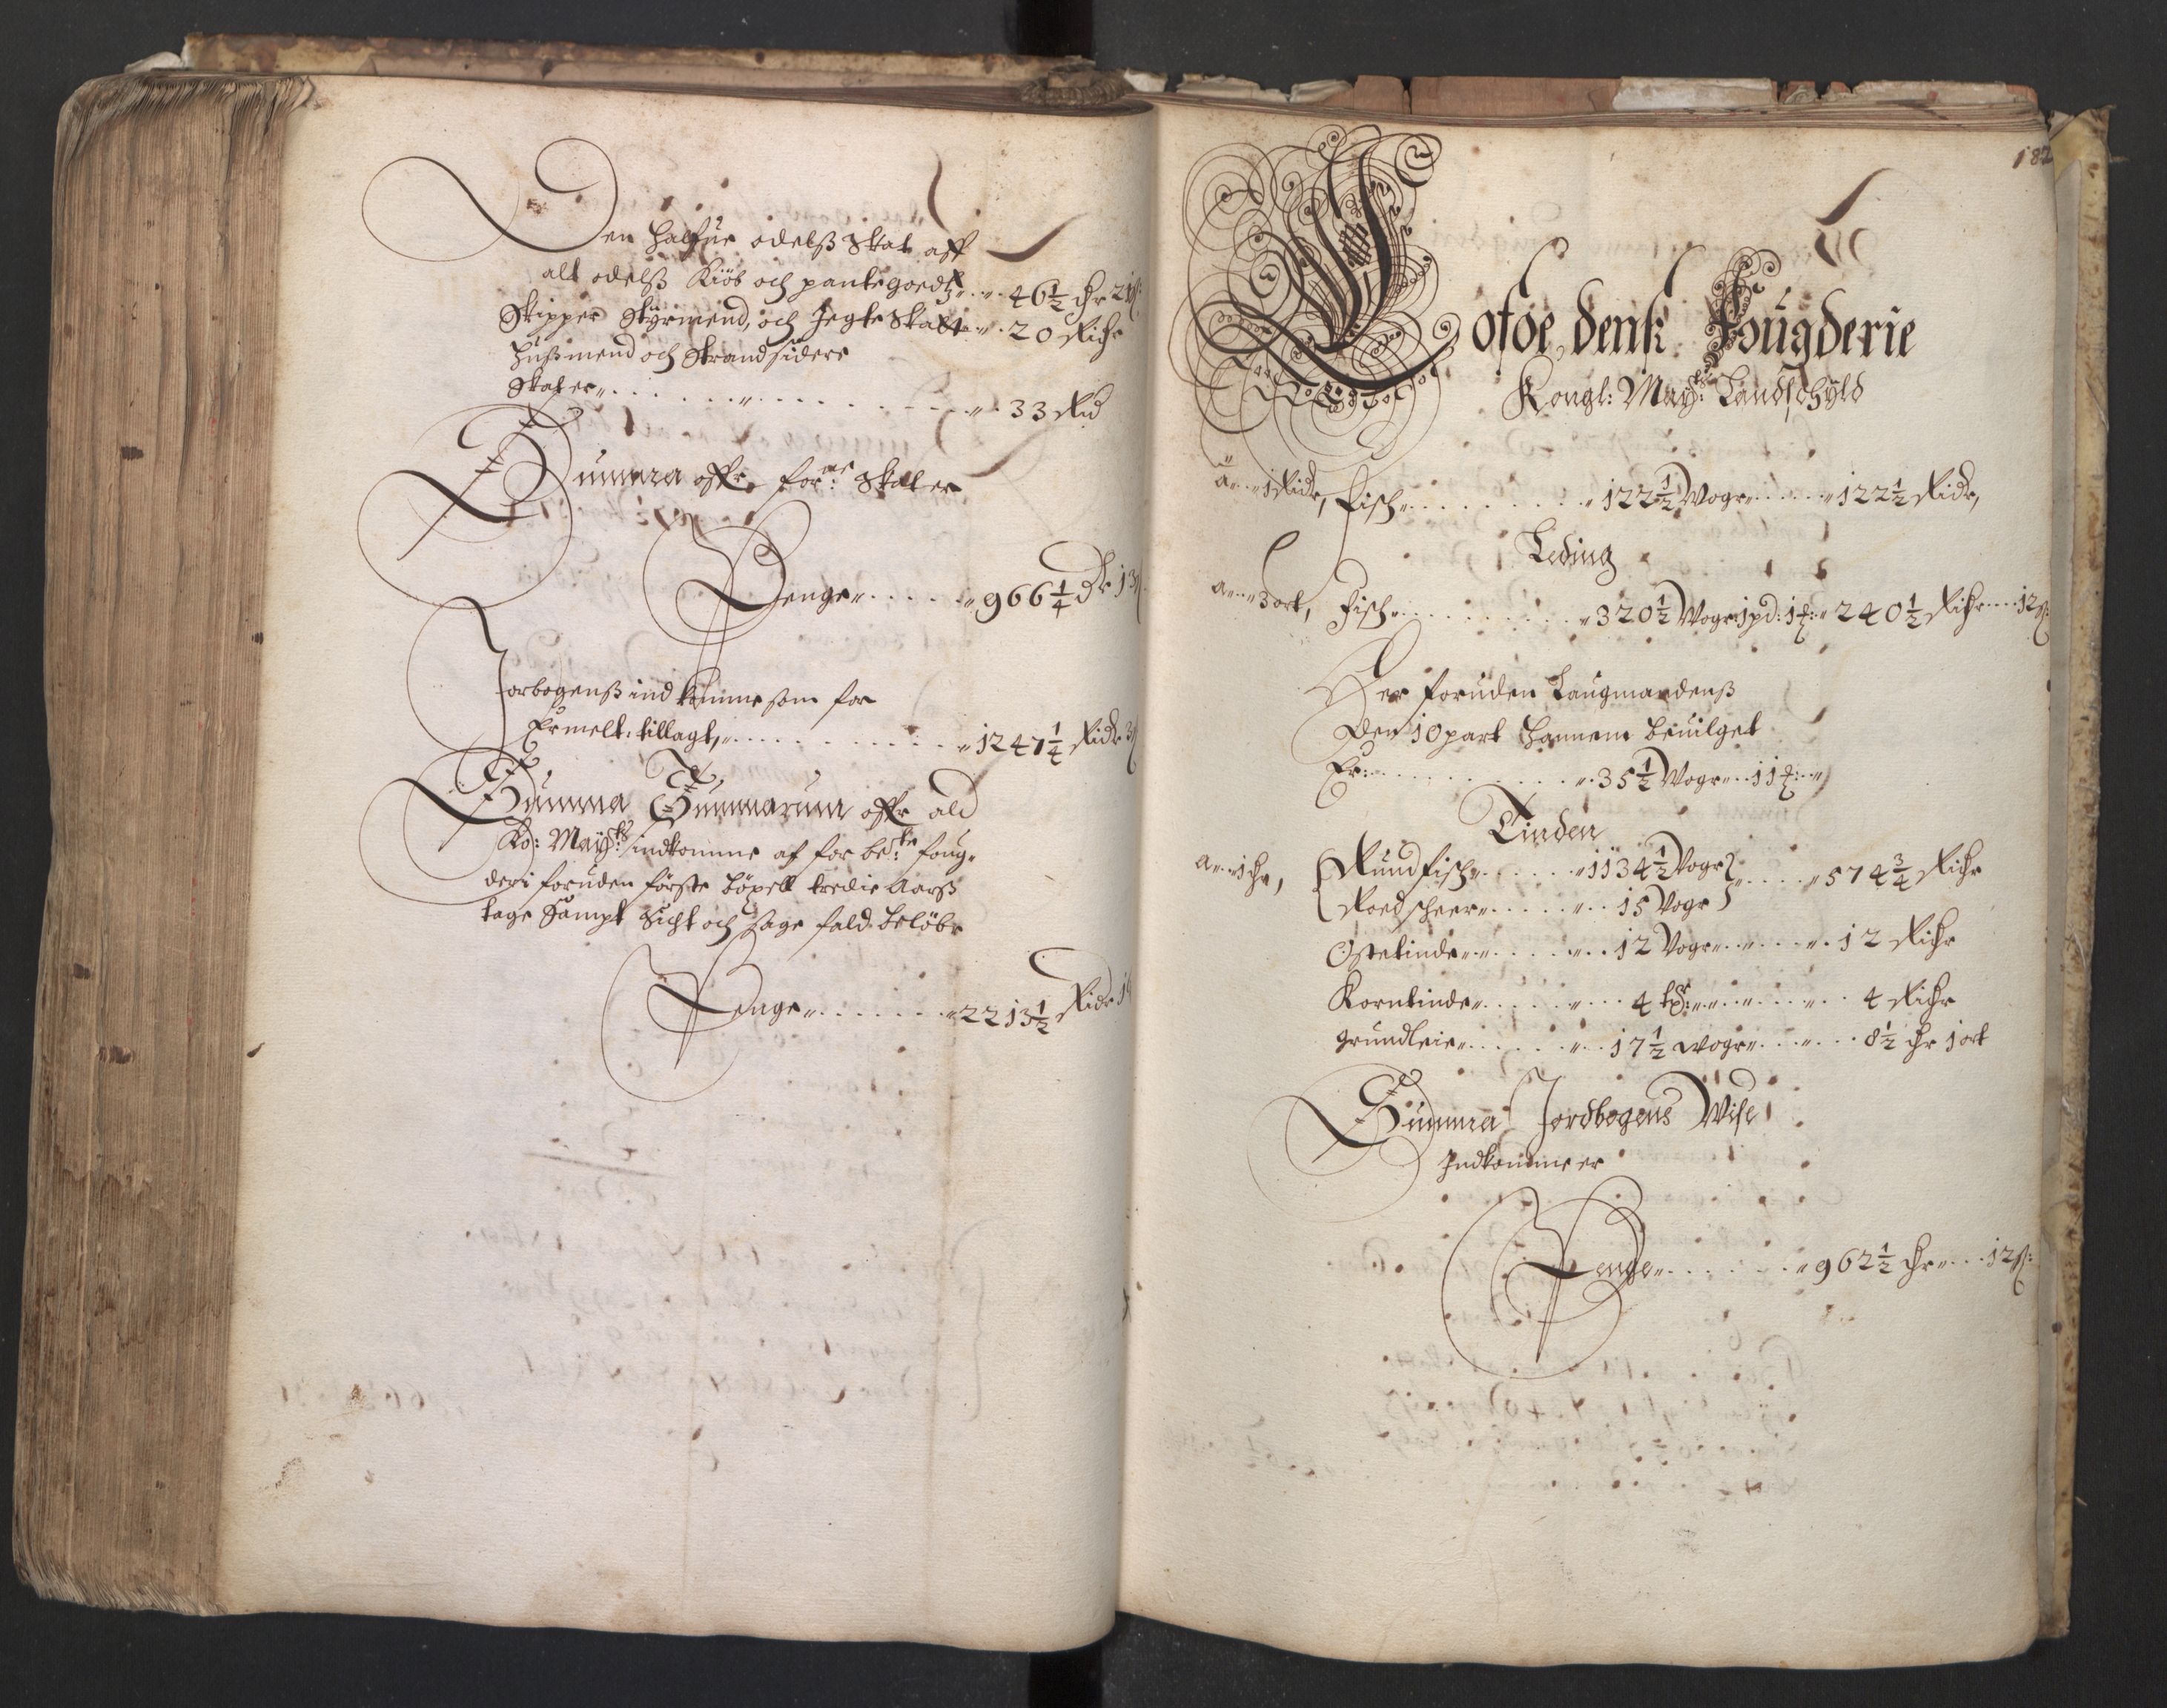 Den halfue odelß Skat aff
alt odelß Kiöb och pantegoedtz „ „ 46½ dhr 21 ß:
Skipper Styrmend, och Jegte Skatt „ „ 20 Richr
Hußmend och Strandsiders
Skater „ „ „ 33 Rid
Summa offr for:ne Skater
Penge „ „ 966¼ dr 13 ß
Jorbogenß indkomme som for
Ermelt tillagt, „ „ 1247¼ Ridr 3 ß
Summa Summarum offr ald
Ko: May:ts indkomme af for be:te foug„
deri foruden förste böxell tredie Aarß
tage Sampt Sicht och Sagefald belöbr
Penge „ „ 2213½ Ridr 16
182
Lofoedenß Fougderie
Kongl: May:ts Landschyld
a „ „ 1 Ridr, Fisch „ „ 122½ Wogr „ „ 122½ Ridr,
Leding
a „ „ 3 ort, Fisch „ „ 320½ Wogr 1 pd: 1 ℔: „ 240½ Richr „ 12 ß:
Her foruden Laugmandenß
Den 10 part Hannem beuilget
Er: „ 35½ Wogr „ 11 ℔: „
Tinden
a „ „ ½ hr, Rundfisch „ „ 1134½ Vogr „ „ 574¾ Richr
Roedscher „ „ 15 Vogr
Ostetinde „ „ 12 Vogr „ „ 12 Richr
Korntinde „ „ 4 tdr: „ „ 4 Richr
Grundleie „ „ 17½ wogr „ „ 8½ hr 1 ort
Summa Jordbogens Wise
Indkomme er
Penge „ „ 962½ hr „ 12 ß: